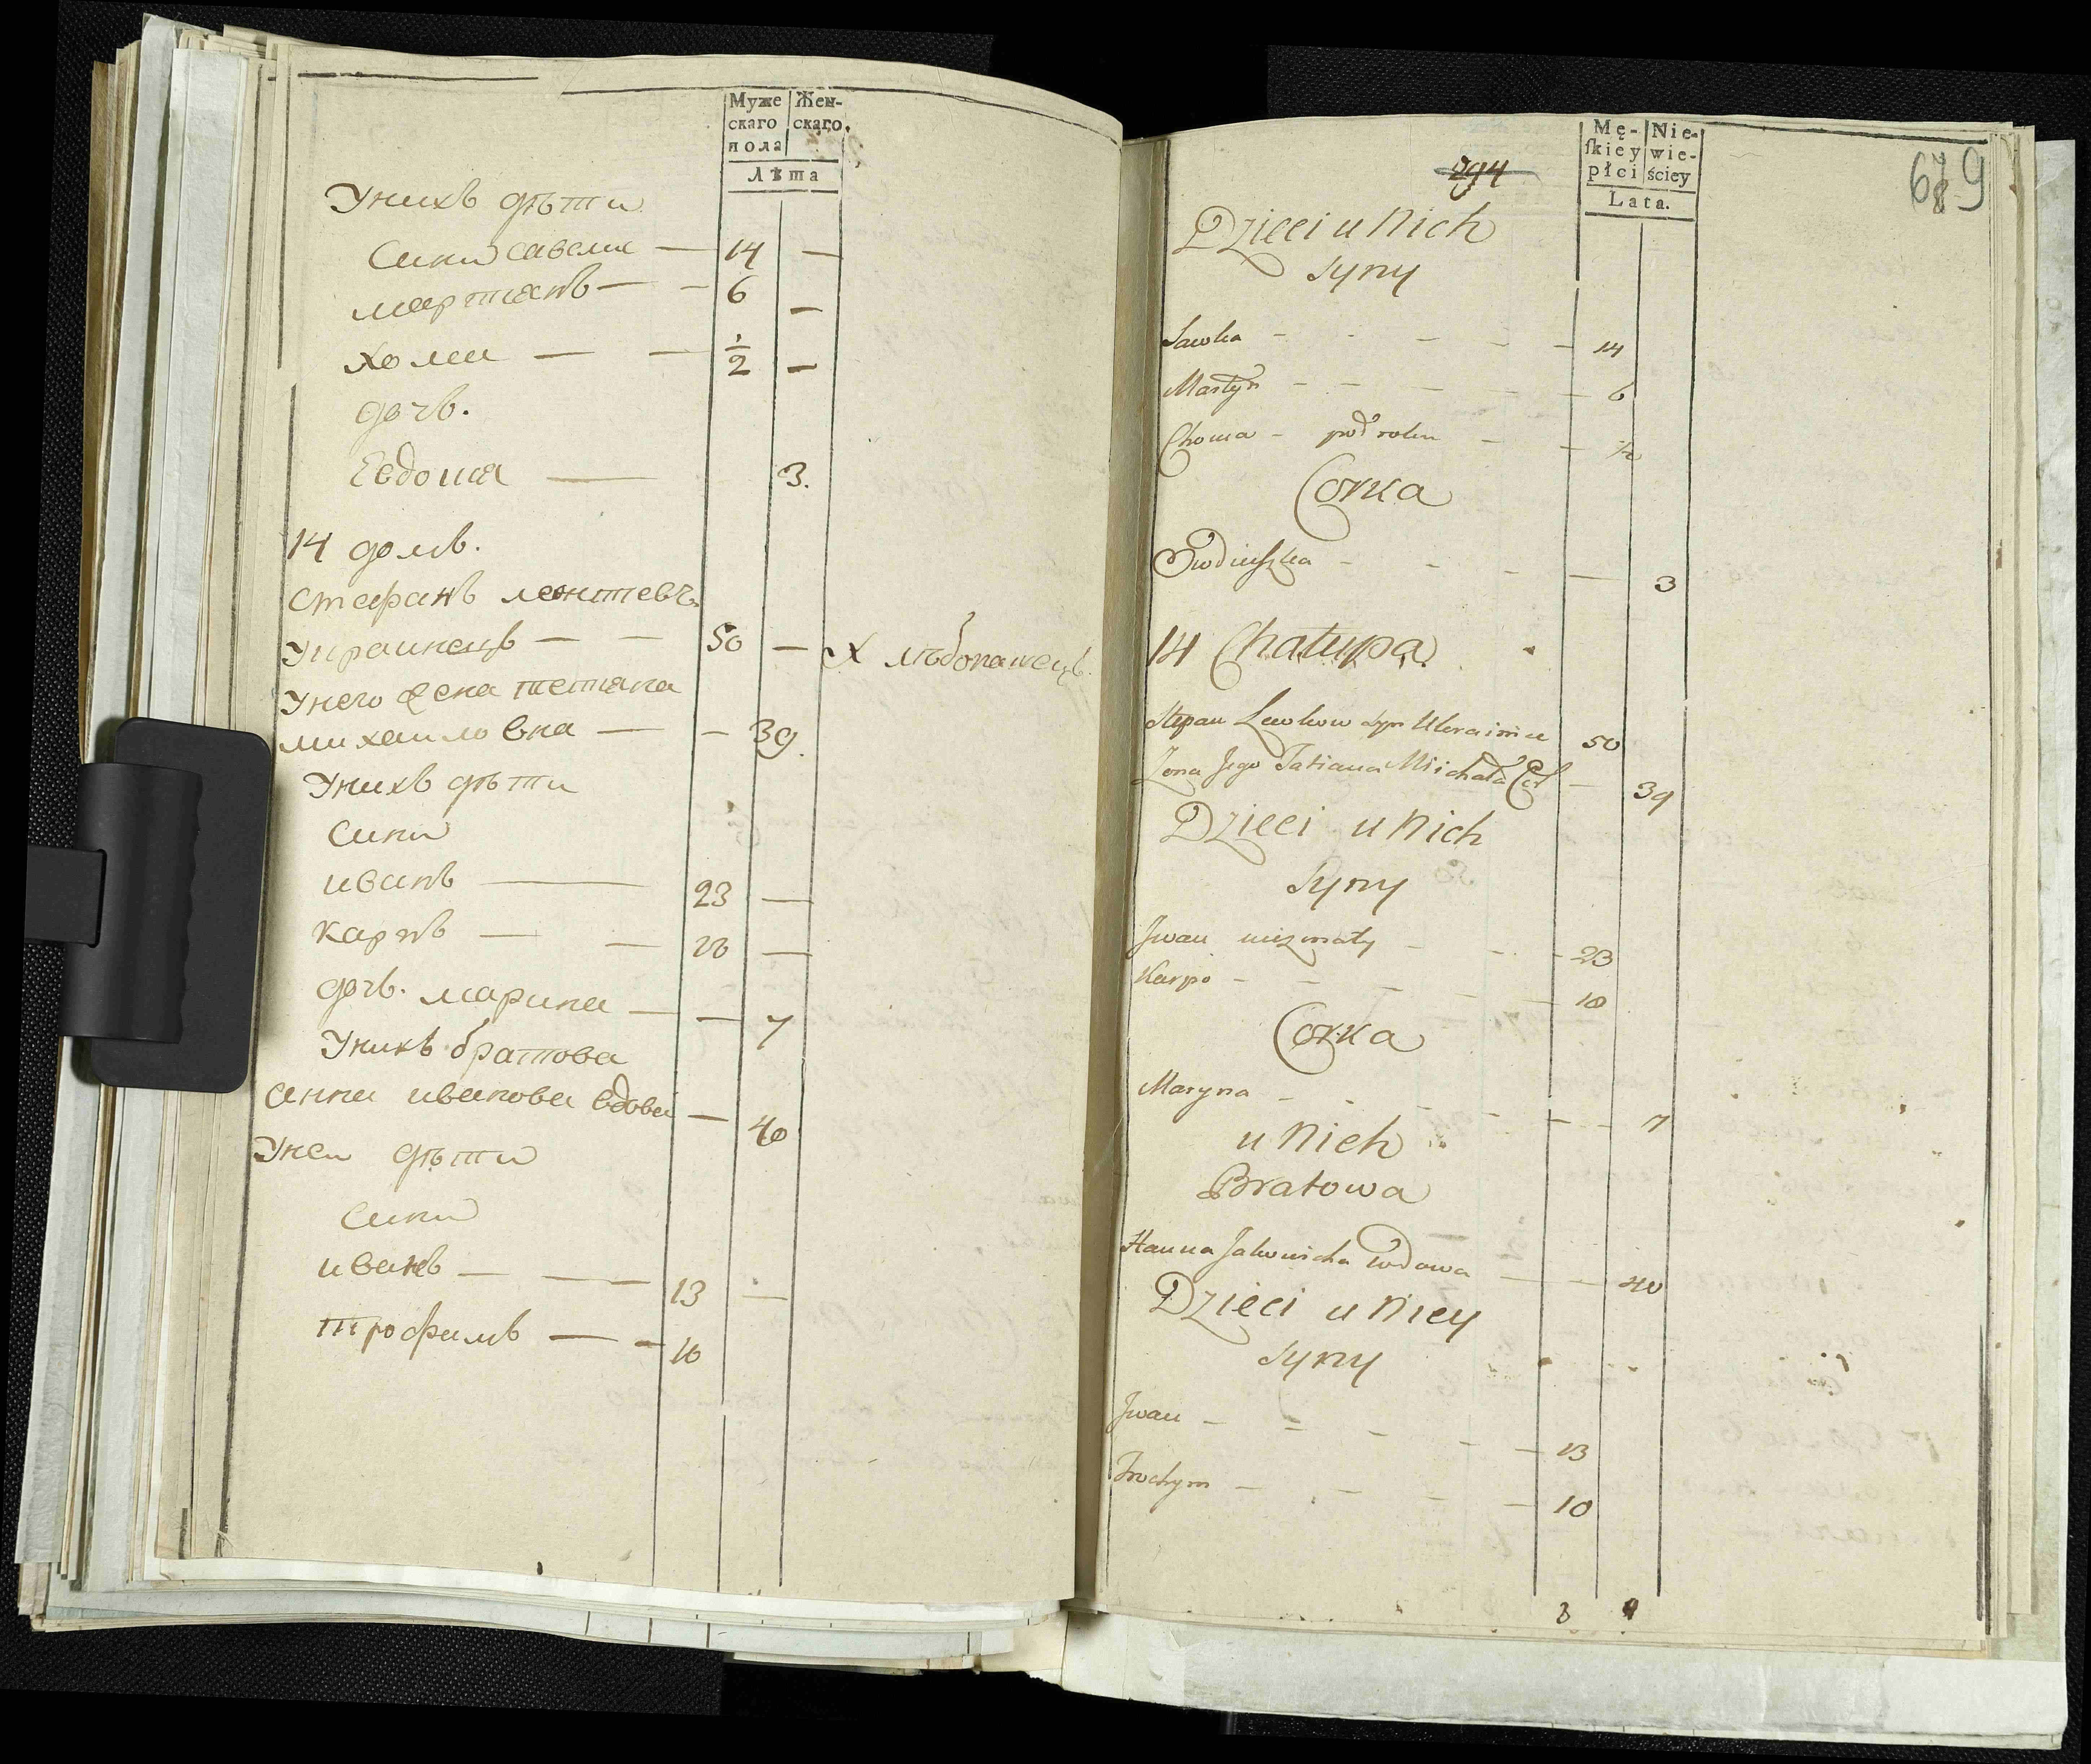 Муже
скаго
пола
Жен-
скаго.
Лѣта
Унихъ дѣти
Сини савели — 14 —
мартинъ — — 6 —
хома — — ½ —
дочъ.
Евдоша — 3.
14 домъ.
Стефанъ леонтевъ
Украинецъ — — 50 — Хлѣбопашецъ.
Унего жена тетяна
михаиловна — — 39.
Унихъ дѣти
Сини
иванъ — 23 —
карпъ — — 18 —
дочъ. марина — — 7
Унихъ братова
анна иванова вдова — 40
Унеи дѣти
Сини
иванъ — — 13 —
трофимъ — — 10
294
Mę-
skiey
płci
Nie-
wie-
ściey
Lata.
679
Dzieci u Nich
Syny
Sawka - - - - - 14
Martyn - - - - - 6
Choma - pod rokiem - - ½
Corka
Ewdiuszka - - - — 3
14 Chałupa.
Stepan Lewkow syn Ukrainiec 50
Zona Jego Tatiana Michała Cor - 39
Dzieci u Nich
Syny
Jwan niezonaty - - - 23
Karpo - - - - - - 18
Corka
Maryna - - - - - - 7
u Nich
Bratowa
Hanna Jakowicha wdowa — - 40
Dzieci u Niey
Syny
Jwan - - - - - 13
Trochym - - - - - 10
8 4